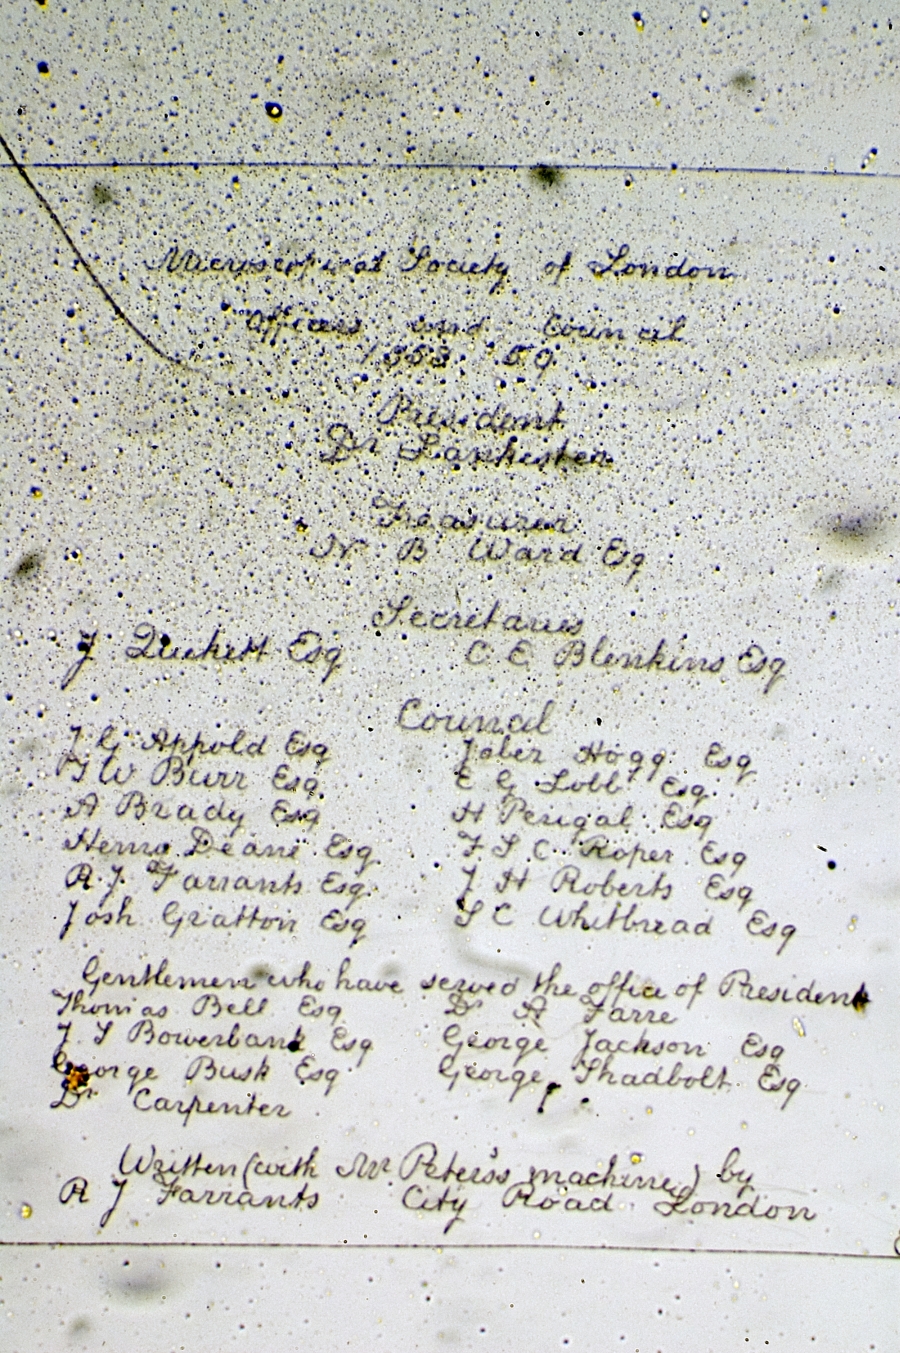 Microscopical Society of London
Officers and Council
1858 59
President
Dr Lankester
Treasurer
N B Ward Esq
Secretaries
J Quekett Esq C E Blenkins Esq
Council
J G Appold Esq Jaber Hogg Esq
G W Burr Esq E G Lobb Esq
A Brady Esq H Perigal Esq
Henry Deane Esq F S C Roper Esq
R J Farrants Esq J H Roberts Esq
Josh Gratton Esq S C Whitbread Esq
Gentlemen who have served the office of President
Thomas Bell Esq Dr A Farre
J S Bowerbank Esq George Jackson Esq
George Busk Esq George Shadbolt Esq
Dr Carpenter
Written (with Mr Peters's machine) by
R J Farrants City Road London